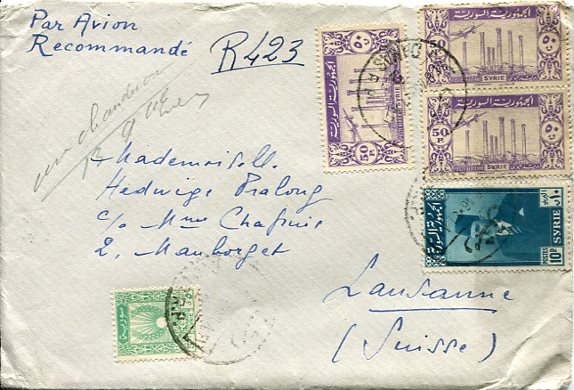 Par Avion
Recommandé
R423
Mademoiselle
Hedwige Pralong
c/o Mme Chapuis
2, Mauborget
Lausanne
(Suisse)
الجمهورية السورية
SYRIE
50 P
الجمهورية السورية
SYRIE
50 P
الجمهورية السورية
SYRIE
50 P
الجمهورية السورية
SYRIE
10 P